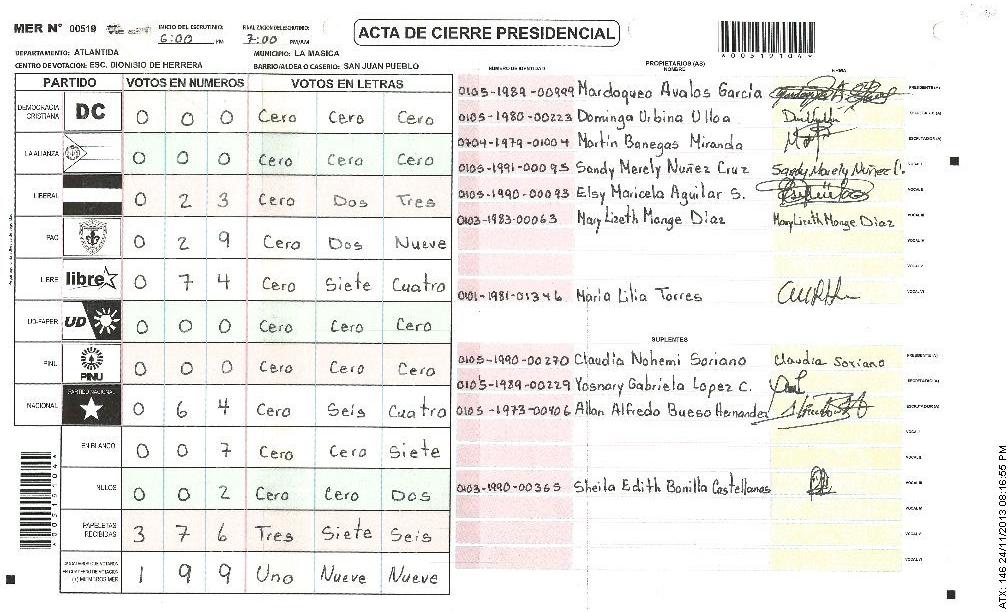 MER N° 00519
INICIO DEL ESCRUTINIO: 6:00 PM
FINALIZACION DEL ESCRUTINIO: 7:00 PM/AM
ACTA DE CIERRE PRESIDENCIAL
DEPARTAMENTO: ATLANTIDA MUNICIPIO: LA MASICA
CENTRO DE VOTACION: ESC. DIONISIO DE HERRERA BARRIO/ALDEA O CASERIO: SAN JUAN PUEBLO
PARTIDO VOTOS EN NUMEROS VOTOS EN LETRAS
DEMOCRACIA CRISTIANA DC 0 0 0 Cero Cero Cero
LA ALIANZA 0 0 0 Cero Cero Cero
LIBERAL 0 2 3 Cero Dos Tres
PAC 0 2 9 Cero Dos Nueve
LIBRE libre 0 7 4 Cero Siete Cuatro
UD-FAPER UD 0 0 0 Cero Cero Cero
PINU PINU 0 0 0 Cero Cero Cero
NACIONAL PARTIDO NACIONAL 0 6 4 Cero Seis Cuatro
EN BLANCO 0 0 7 Cero Cero Siete
NULOS 0 0 2 Cero Cero Dos
PAPELETAS RECIBIDAS 3 7 6 Tres Siete Seis
(+) MIEMBROS MER 1 9 9 Uno Nueve Nueve
NÚMERO DE IDENTIDAD PROPIETARIOS (AS) NOMBRE FIRMA
0105-1989-00999 Mardoqueo Avalos García PRESIDENTE (A)
0105-1980-00223 Dominga Urbina Ulloa SECRETARIO (A)
0704-1979-01004 Martin Banegas Miranda ESCRUTADOR (A)
0105-1991-00095 Sandy Merely Nuñez Cruz Sandy Merely Nuñez C. VOCAL I
0105-1990-00093 Elsy Maricela Aguilar S. VOCAL II
0103-1983-00063 Mary Lizeth Monge Diaz Mary Lizeth Monge Diaz VOCAL III
VOCAL IV
VOCAL V
0101-1981-01346 Maria Lilia Torres VOCAL VI
SUPLENTES
0105-1990-00270 Claudia Nohemi Soriano Claudia Soriano PRESIDENTE (A)
0105-1989-00229 Yosnary Gabriela Lopez C. SECRETARIO (A)
0105-1973-00406 Allan Alfredo Bueso Hernandez ESCRUTADOR (A)
VOCAL I
VOCAL II
0103-1990-00365 Sheila Edith Bonilla Castellanos VOCAL III
VOCAL IV
VOCAL V
VOCAL VI
ATX: 146 24/11/2013 08:16:55 PM